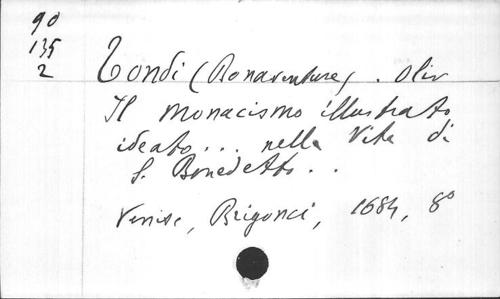 90
135
2
Tondi (Bonaventure). Oliv
Il monacismo illustrato
ideato... nella Vita di
S. Benedetto..
Venise, Brigonci, 1684, 8º